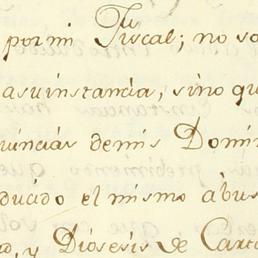 por mi Fiscal; no so
asuinstancia, sino qu
uncias demis Domin
ducido el mismo abus
y Diosesis de Carta